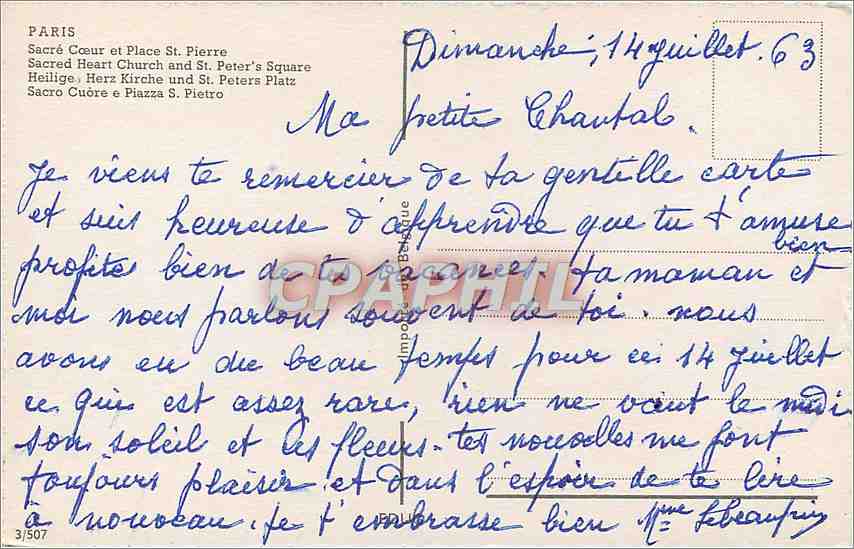 PARIS
Sacré Cœur et Place St. Pierre
Sacred Heart Church and St. Peter's Square
Heilige Herz Kirche und St. Peters Platz
Sacro Cuore e Piazza S. Pietro
Dimanche, 14 juillet. 63
Ma petite Chantal.
Je viens te remercier de ta gentille carte
et suis heureuse d'apprendre que tu t'amuse
bien
profites bien de tes vacances. ta maman et
moi nous parlons souvent de toi. nous
avons eu du beau temps pour ce 14 juillet
ce qui est assez rare, rien ne vaut le midi
son soleil et les fleurs. tes nouvelles me font
toujours plaisir et dans l'espoir de te lire
à nouveau. Je t'embrasse bien Mme
3/507
Importé de Belgique
CPAPHIL